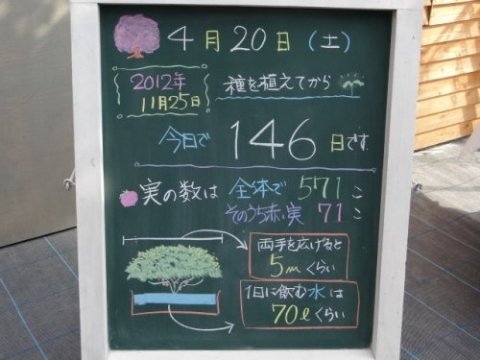 4月20日(土)
2012年
11月25日
種を植えてから
今日で 146日です。
実の数は 全体で 571こ
そのうち赤い実 71こ
両手を広げると
5mくらい
1日に飲む水は
70ℓくらい